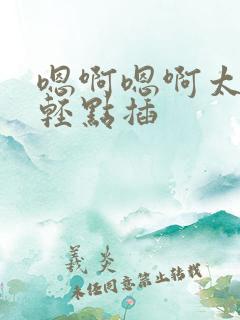 嗯啊嗯啊太
輕點插
義炎
未經同意禁止转载